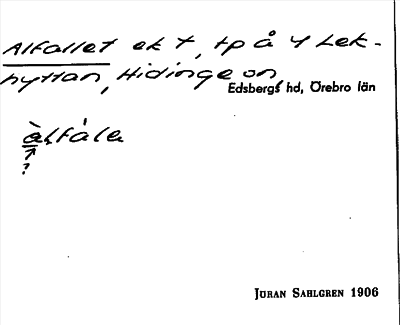 Alfallet ek t, tp å Y Lek-
hyttan, Hidinge sn
Edsbergs hd, Örebro län
àlfála
?
JÖRAN SAHLGREN 1906